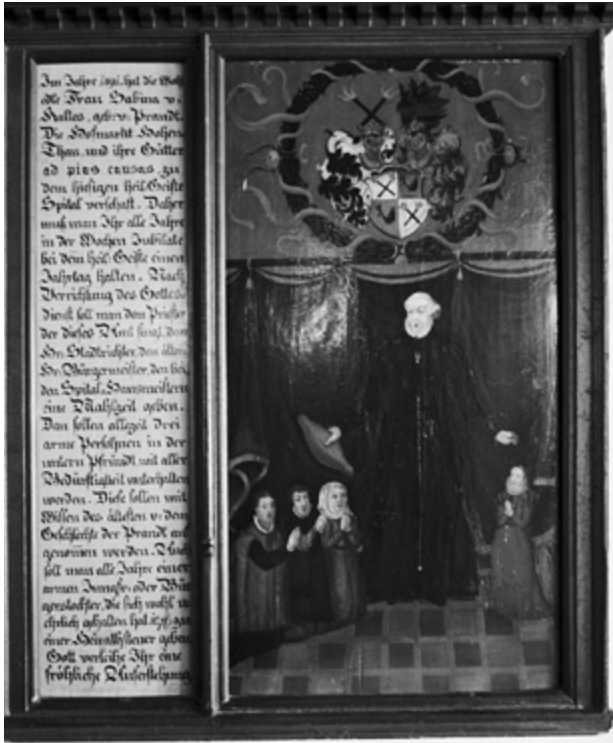 Im Jahre 1591. hat die Wohl
edle Frau Sabina v.
Halles, geb: v: Prandt.
Die Hofmarkt Hohen
Than, und ihre Gütter
ad pias causas, zu
dem hiesigen heil: Geist-
Spital verschaft. Daher
muß man Ihr alle Jahre
in der Wochen Jubilate
bei dem heil: Geiste einen
Jahrtag halten. Nach
Verrichtung des Gottes-
dienst soll man dem Priester
der dieses Amt singt, dem
Hr: Stadtrichter, dem ältern
Hr: Bürgermeister, den bei
den Spital-Hausmeistern
eine Mahlzeit geben.
Dan sollen allezeit drei
arme Persohnen in der
untern Pfründt mit aller
Bedürftigkeit unterhalten
werden. Diese sollen mit
Wissen des ältesten v: dem
Geschlechte der Prandt auf
genom̄en werden. Auch
soll man alle Jahre einer
armen Jungfr: oder Bür
gerstochter, die sich wohl u:
ehrlich gehalten hat
einer Heirathsteuer geben
Gott verleihe Ihr eine
fröhliche Auferstehung